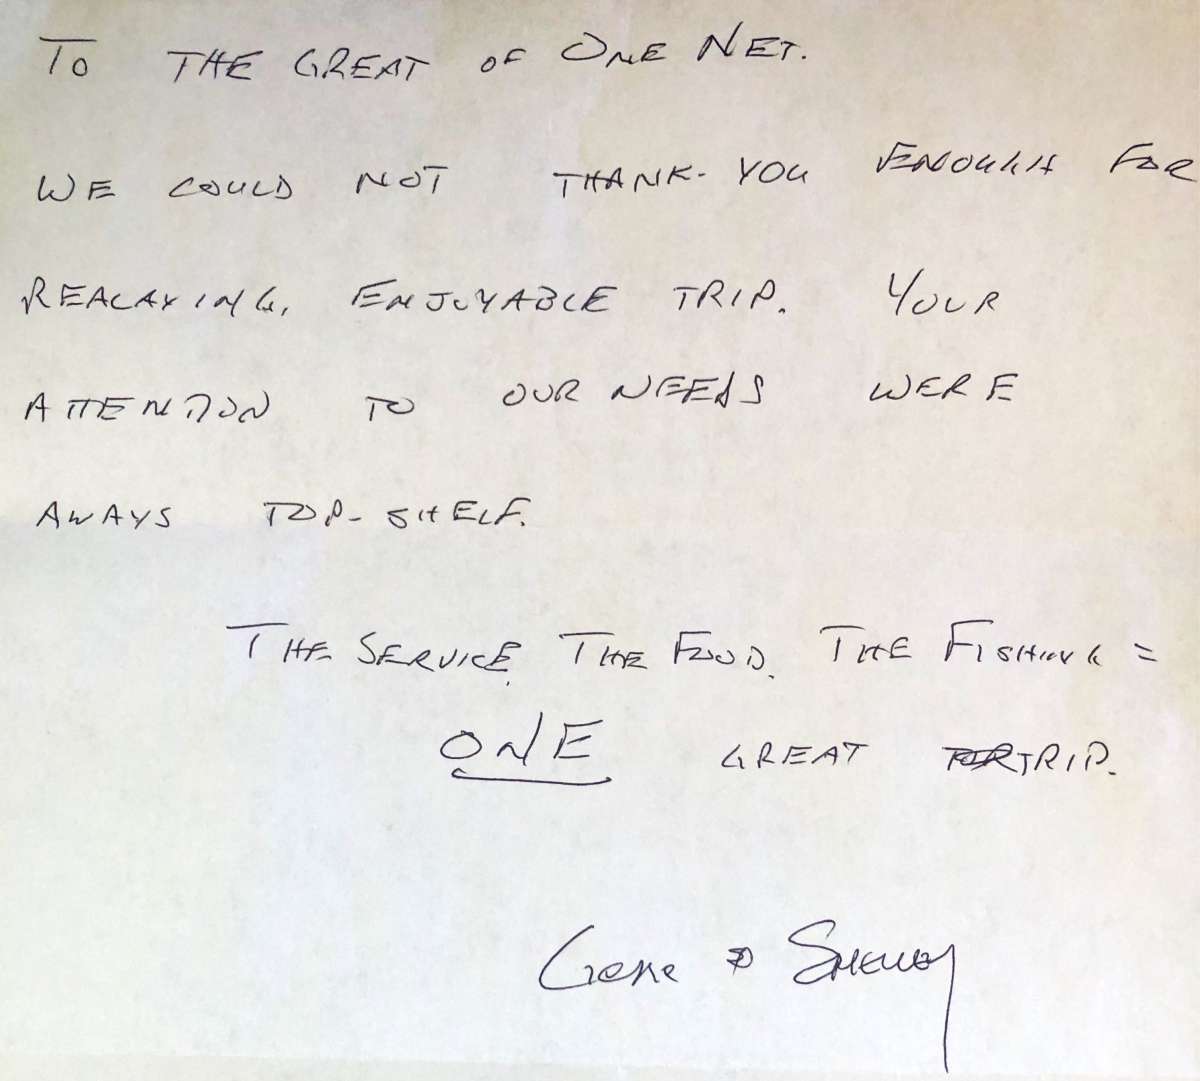 TO THE GREAT OF ONE NET.
WE COULD NOT THANK-YOU ENOUGH FOR
REALAXING, ENJOYABLE TRIP. YOUR
ATTENTION TO OUR NEEDS WERE
AWAYS TOP-SHELF.
THE SERVICE. THE FOOD. THE FISHING =
ONE GREAT TRIP.
Gene & SHELLEY